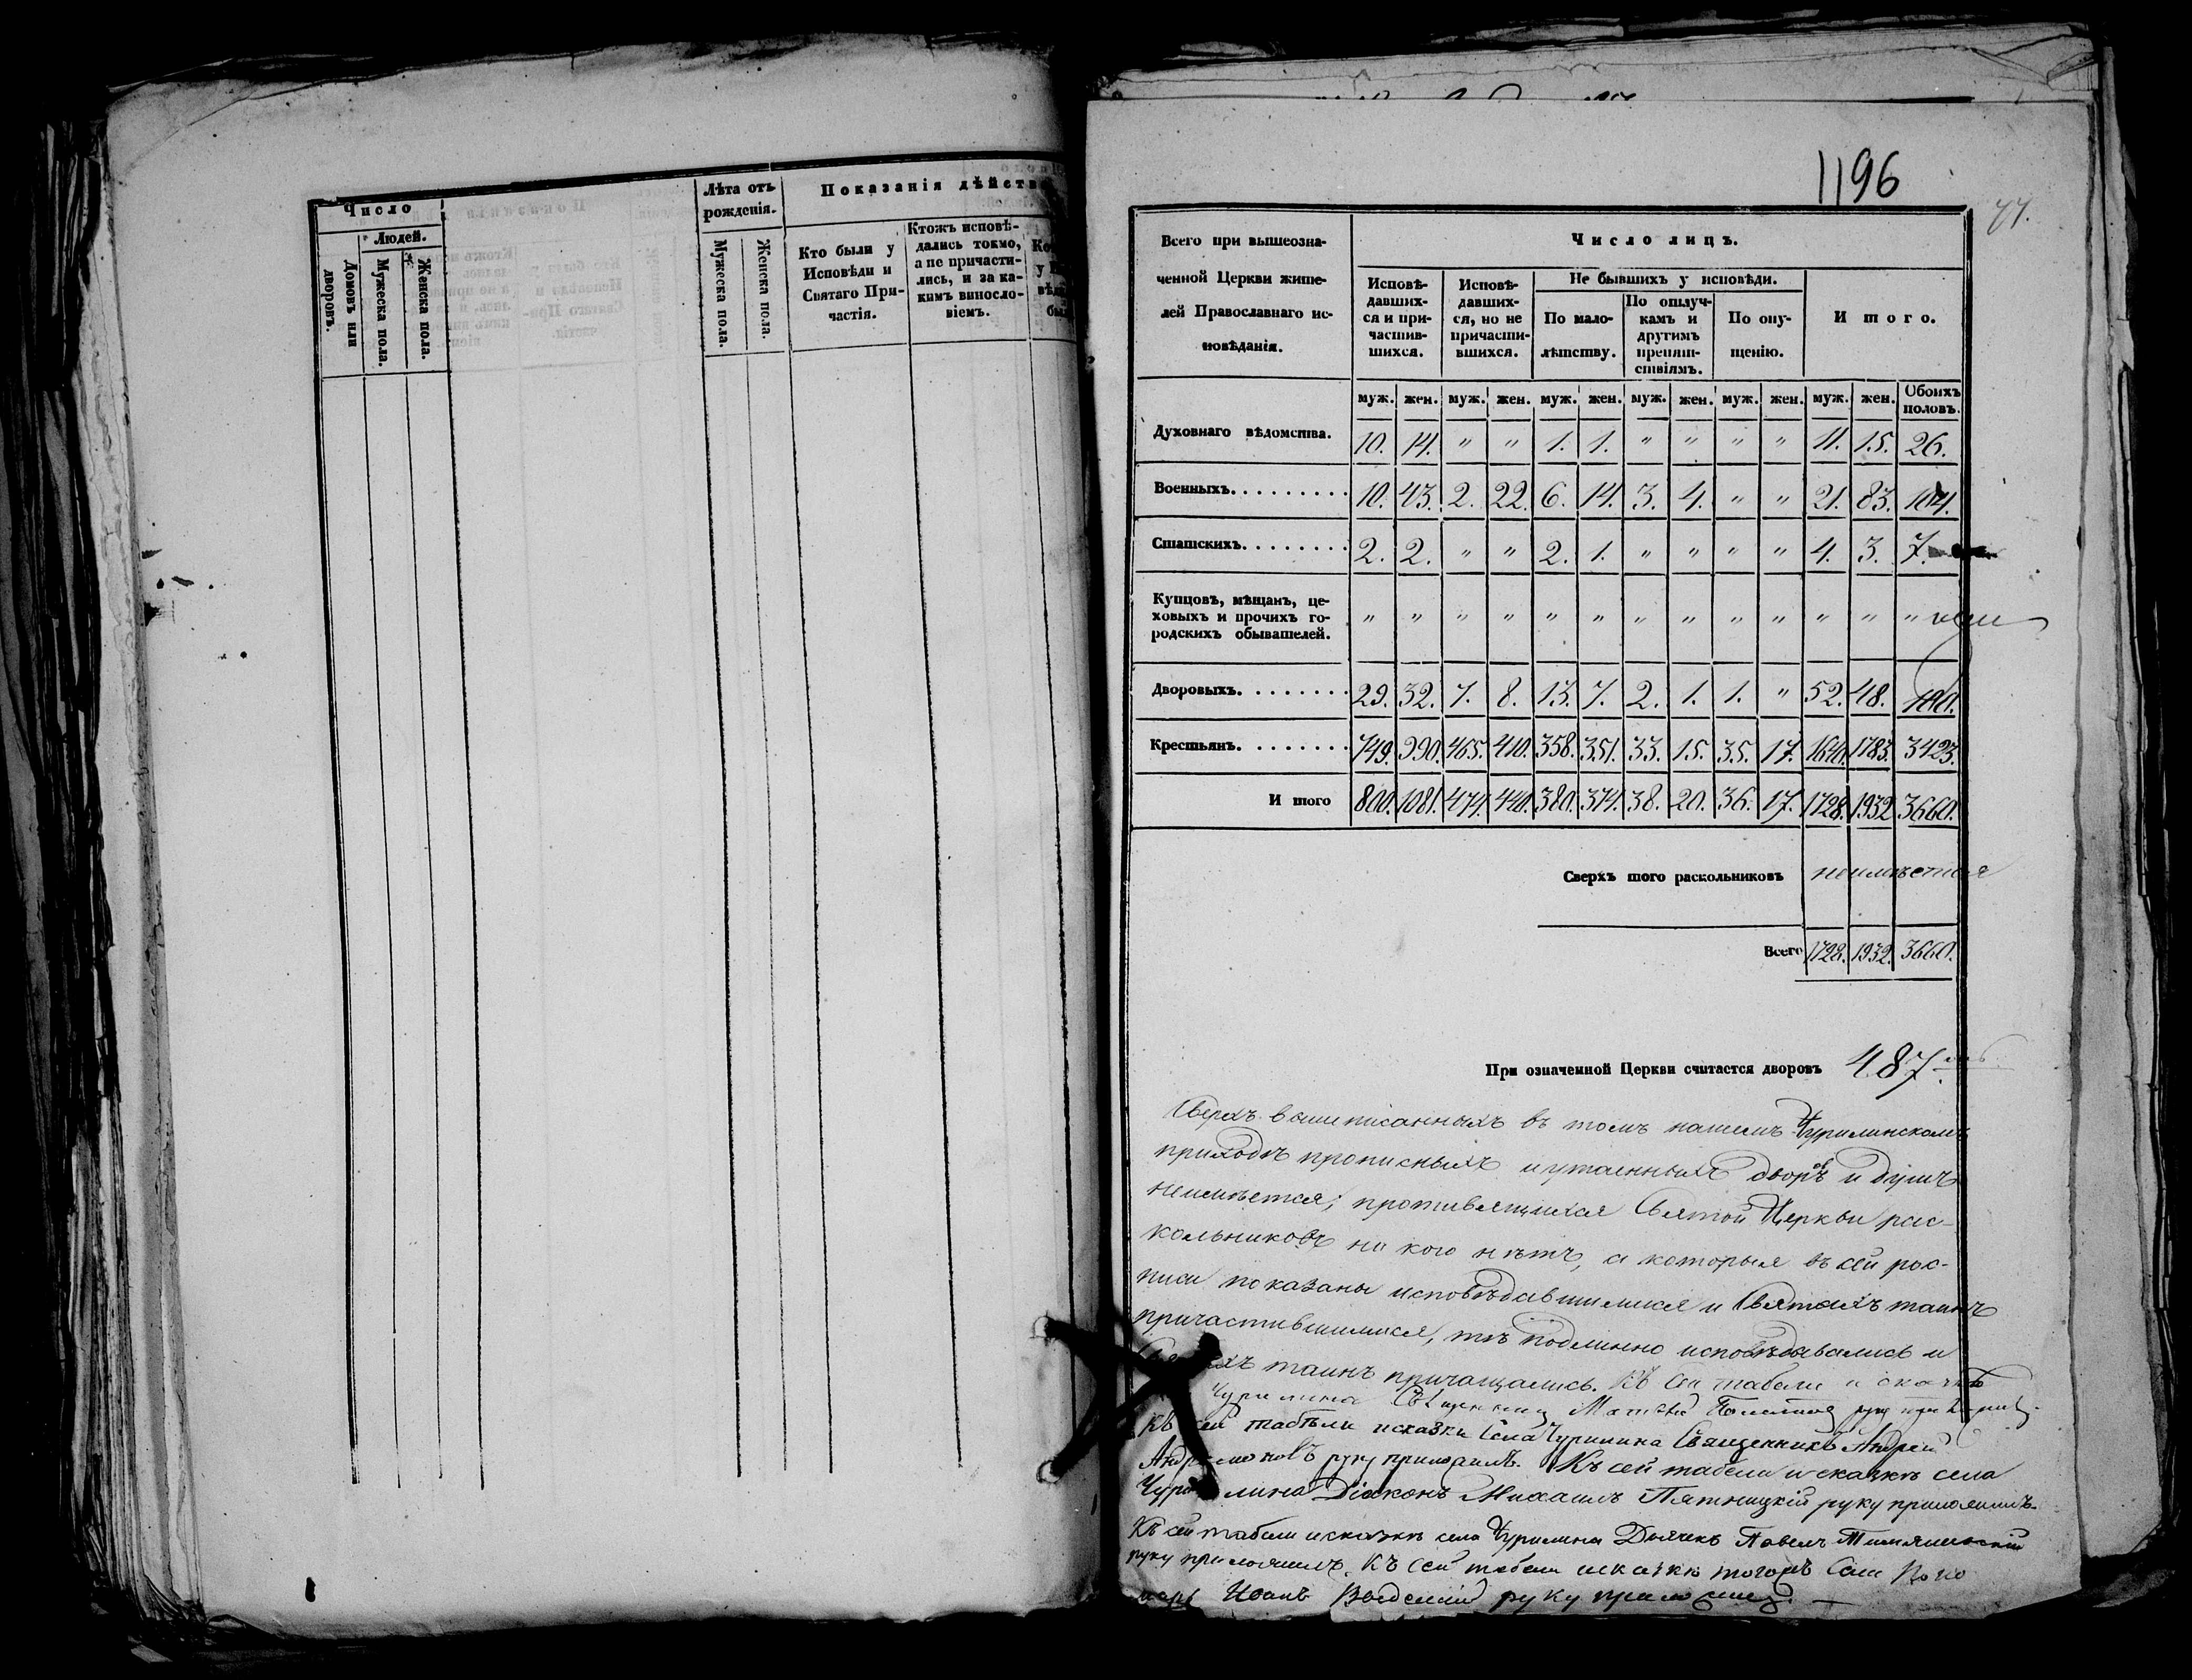 Число
Людей.
Домовъ или дворовъ.
Мужеска пола.
Женска пола.
Лѣта отъ рожденія.
Мужеска пола.
Женска пола.
Показанія дѣйств
Кто были у
Исповѣди и
Святаго При-
частія.
Ктожъ исповѣ-
дались токмо,
а не причасти-
лись, и за ка-
кимъ винносло-
віемъ.
1196
77.
Всего при вышеозна-
ченной Церкви жите-
лей Православнаго ис-
повѣданія.
Число лицъ.
Исповѣ-
давших-
ся и при-
частив-
шихся.
Исповѣ-
давших-
ся, но не
причасти-
вшихся.
Не бывшихъ у исповѣди.
По мало-
лѣтству.
По отлуч-
камъ и
другимъ
препят-
ствіямъ.
По опу-
щенію.
Итого.
муж. жен. муж. жен. муж. жен. муж. жен. муж. жен. муж. жен. Обоихъ половъ.
Духовнаго вѣдомства. 10. 14. " " 1. 1. " " " " 11. 15. 26.
Военныхъ. 10. 43. 2. 22. 6. 14. 3. 4. " " 21. 83. 104.
Статскихъ. 2. 2. " " 2. 1. " " " " 4. 3. 7.
Купцовъ, мѣщанъ, це-
ховыхъ и прочихъ го-
родскихъ обывателей. " " " " " " " " " " " " "
Дворовыхъ. 29. 32. 7. 8. 13. 7. 2. 1. 1. " 52. 48. 100.
Крестьянъ. 749. 990. 465. 410. 358. 351. 33. 15. 35. 17. 1640. 1783. 3423.
Итого 800. 1081. 474. 440. 380. 374. 38. 20. 36. 17. 1728. 1932 3660.
Сверхъ того раскольниковъ неимѣется
Всего 1728. 1932. 3660.
При означенной Церкви считается дворовъ 487.
Сверхъ вышписанныхъ въ томъ нашемъ Чурилинскомъ
приходѣ прописныхъ и утаенныхъ дворовъ и душъ
неимѣется; противящихся Святой Церкви рас-
кольниковъ ни кого нѣтъ, а которыя въ сей рос-
писи показаны исповѣдавшимися и Святыхъ таинъ
причастившимися, тѣ подлинно исповѣдавались и
таинъ причащались. Къ сей табели и сказкѣ
Чурилина Священникъ Матвѣй руку
Къ сей табѣли исказки села Чурилина Священникъ Андрей
руку приложилъ. Къ сей табели и сказкѣ села
Чурилина Діаконъ Михаилъ Пятницкій руку приложилъ.
Къ сей табели исказкѣ села Чурилина Дьячекъ Павелъ
руку приложилъ. Къ сей табели исказкѣ тогожъ села Поно
марь Иванъ Введенскій руку приложилъ.